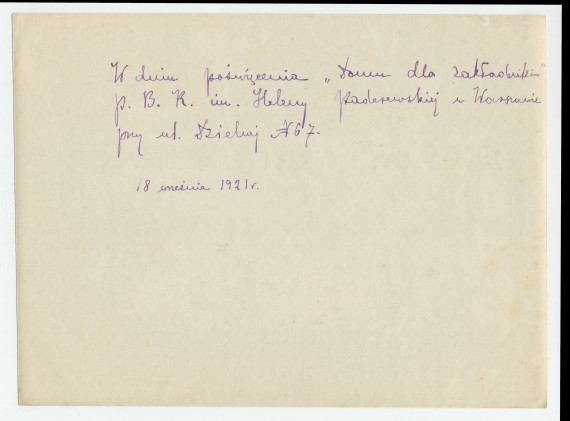 W dniu poświęcenia „Domu dla zakładników"
P. B. K. im. Heleny Paderewskiej w Warszawie
przy ul. Dzielnej N 67.
18 września 1921 r.